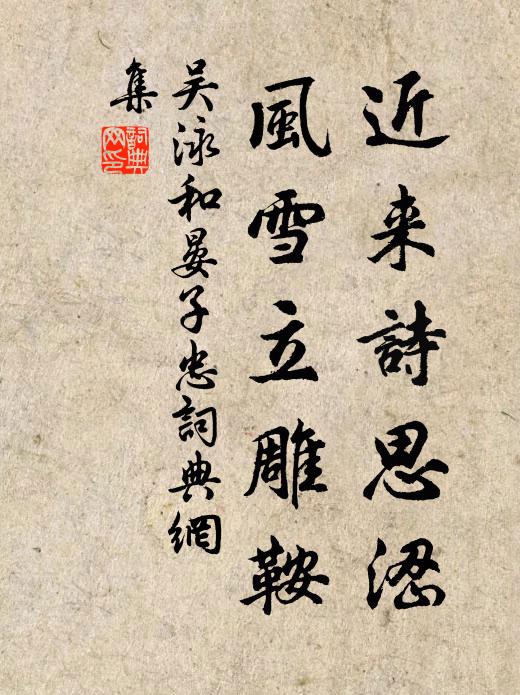 近来詩思涩
風雪立雕鞍
吴泳和晏子忠詞典網
集
詞典
网印